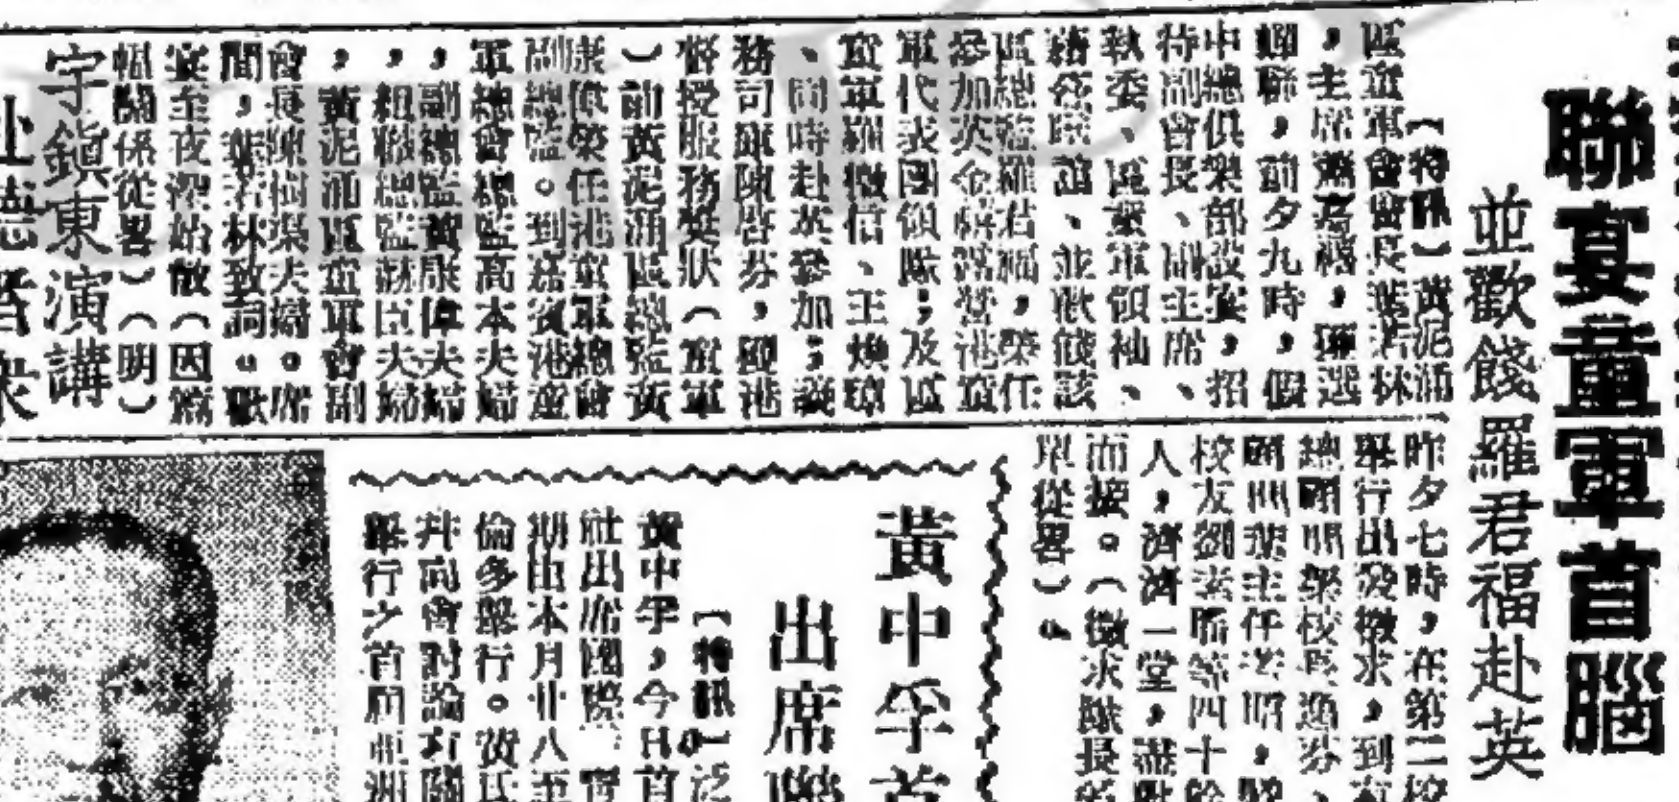 聯宴童軍首腦
並歡餞羅君福赴英
【特訊】黃泥涌
區童軍會會長葉若林
，主席
蟬聯，前夕九時，假
中總俱樂部設宴，招
待副會長、副主席、
執委、區童軍領袖、
藉資聯誼、並歡餞該
區總監羅君福，榮任
參加英金禧露營港童
軍代表團領隊；及區
童軍羅徵信、王煥瓊
、同時赴英參加；義
務司庫陳啓芬，獲港
督授服務獎狀（童軍
）前黃泥涌區總監黃
康偉榮任港童軍總會
副總監。到嘉賓港童
軍總會總監高本夫婦
，副總監黃康偉夫婦
，組聯總監 臣夫婦
，黃泥涌區童軍會副
會長陳樹渠夫婦。席
間，葉若林致詞。歡
宴至夜深始散（因篇
幅關係從畧）（明）
宇鎮東演講
赴聽者眾
昨夕七時，在第二校
舉行出發徵求，到
總顧問 校長
顧問葉主任
校友劉 等四十餘
人，濟濟一堂，盡歡
而接。（徵求隊長
單從畧）。
黃中孚首
出席聯
【特訊】泛
黃中孚，今日首
社出席國際
期由本月廿八至
倫多舉行。黃氏
并向會討論有關
舉行之首屆亞洲